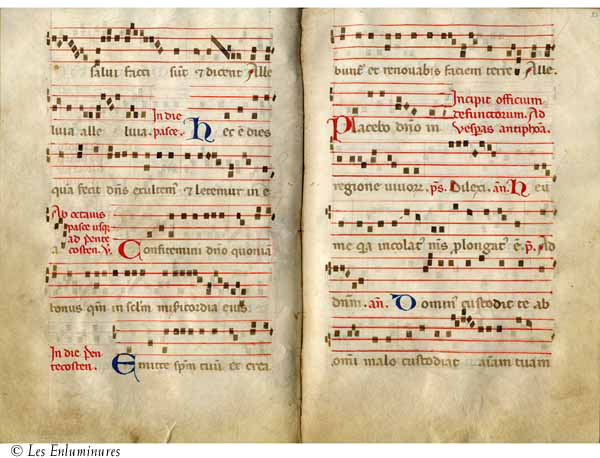 salui facti sūt & dicent Alle
luia alle luia. In die pasce. Hec ē dies
qua fecit dn̄s exultem' & letemur in e
a Ab octauis pasce usq; ad pente costen. V. Confitemini dn̄o quoniā
bonus qm̄ in sclm̄ misericordia eius.
In die pen tecosten. Emitte spm̄ tuū et crea
bunt' et renouabis faciem terre Alle.
Placebo dn̄o in Incipit officium defunctorum. Ad vespas antiphōa.
regione uiuor. ps. Dilexi. an. Heu
me qa incolat' m's prolongat' ē. p. Ad
dnm̄. an. Domin' custodit te ab
omi malo custodiat aīam tuam
© Les Enluminures